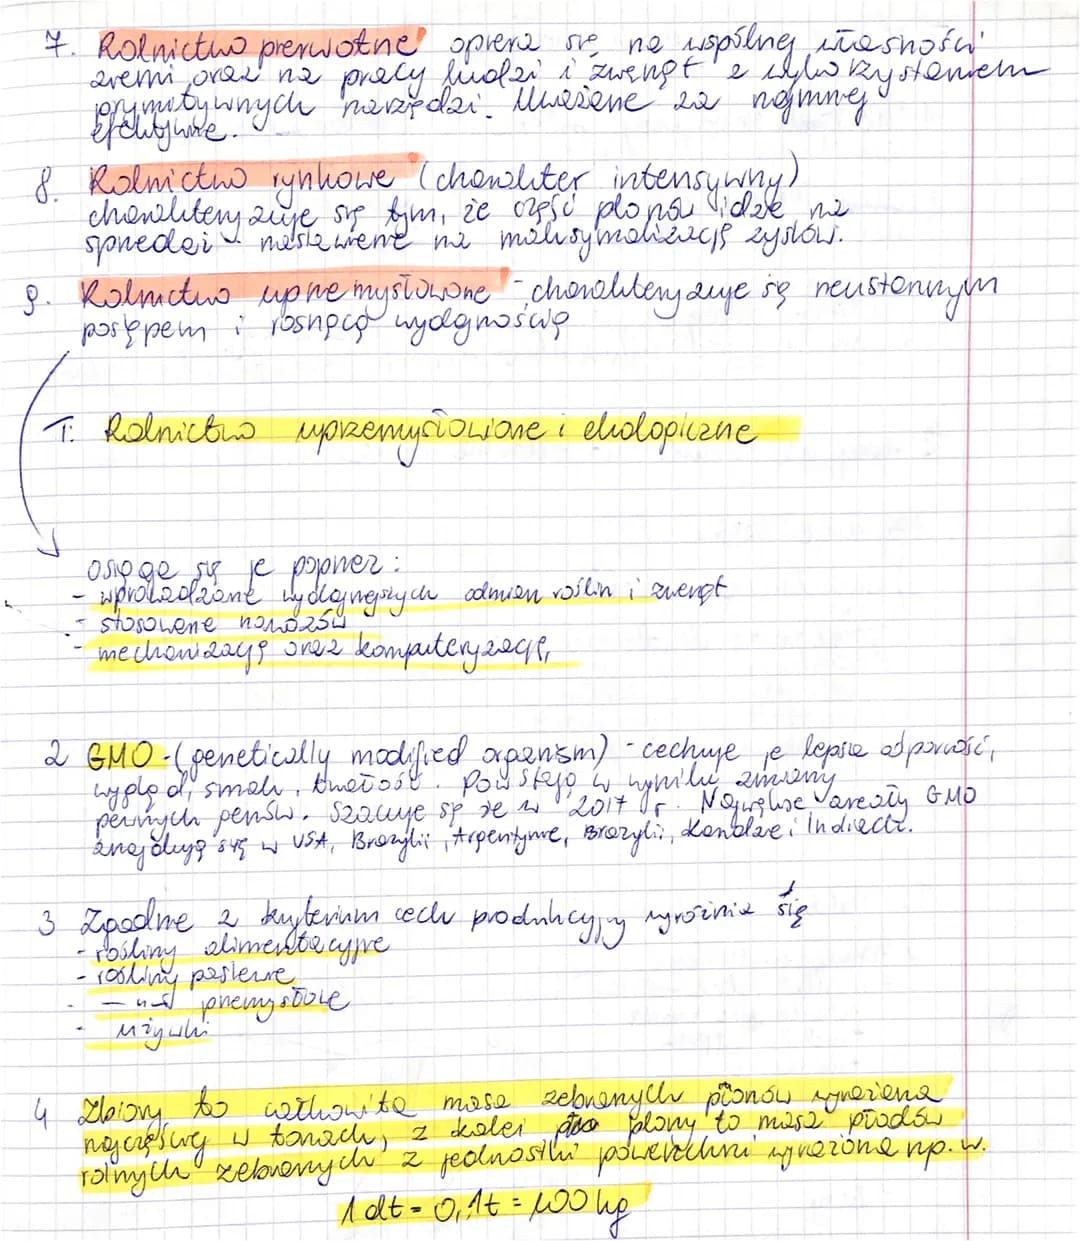 7. Rolnictwo pierwotne opiera się na wspólnej własności
ziemi oraz na pracy ludzi i zwierząt z wykorzystaniem
prymitywnych narzędzi. Uważane za najmniej
efektywne.
8. Rolnictwo rynkowe (charakter intensywny)
charakteryzuje się tym, że część plonów idzie na
sprzedaż - nastawienie na maksymalizację zysków.
9. Rolnictwo uprzemysłowione - charakteryzuje się nieustannym
postępem i rosnącą wydajnością
T: Rolnictwo uprzemysłowione i ekologiczne
osiąga się je poprzez:
- wprowadzanie wydajniejszych odmian roślin i zwierząt
- stosowanie nawozów
- mechanizację oraz komputeryzację,
2 GMO - (genetically modified organism) - cechuje je lepsza odporność,
wygląd, smak, trwałość. Powstają w wyniku zmiany
pewnych genów. Szacuje się że w 2017 r. Największe areały GMO
znajdują się w USA, Brazylii, Argentynie, Brazylii, Kanadzie i Indiach.
3 Zgodnie z kryterium cech produkcyjny wyróżnia się
- rośliny alimentacyjne
- rośliny pastewne
- —u— przemysłowe
- używki
4 Zbiory to całkowita masa zebranych plonów wyrażana
najczęściej w tonach, z kolei plony to masa płodów
rolnych zebranych z jednostki powierzchni wyrażona np. w.
1 dt = 0,1t = 100 kg